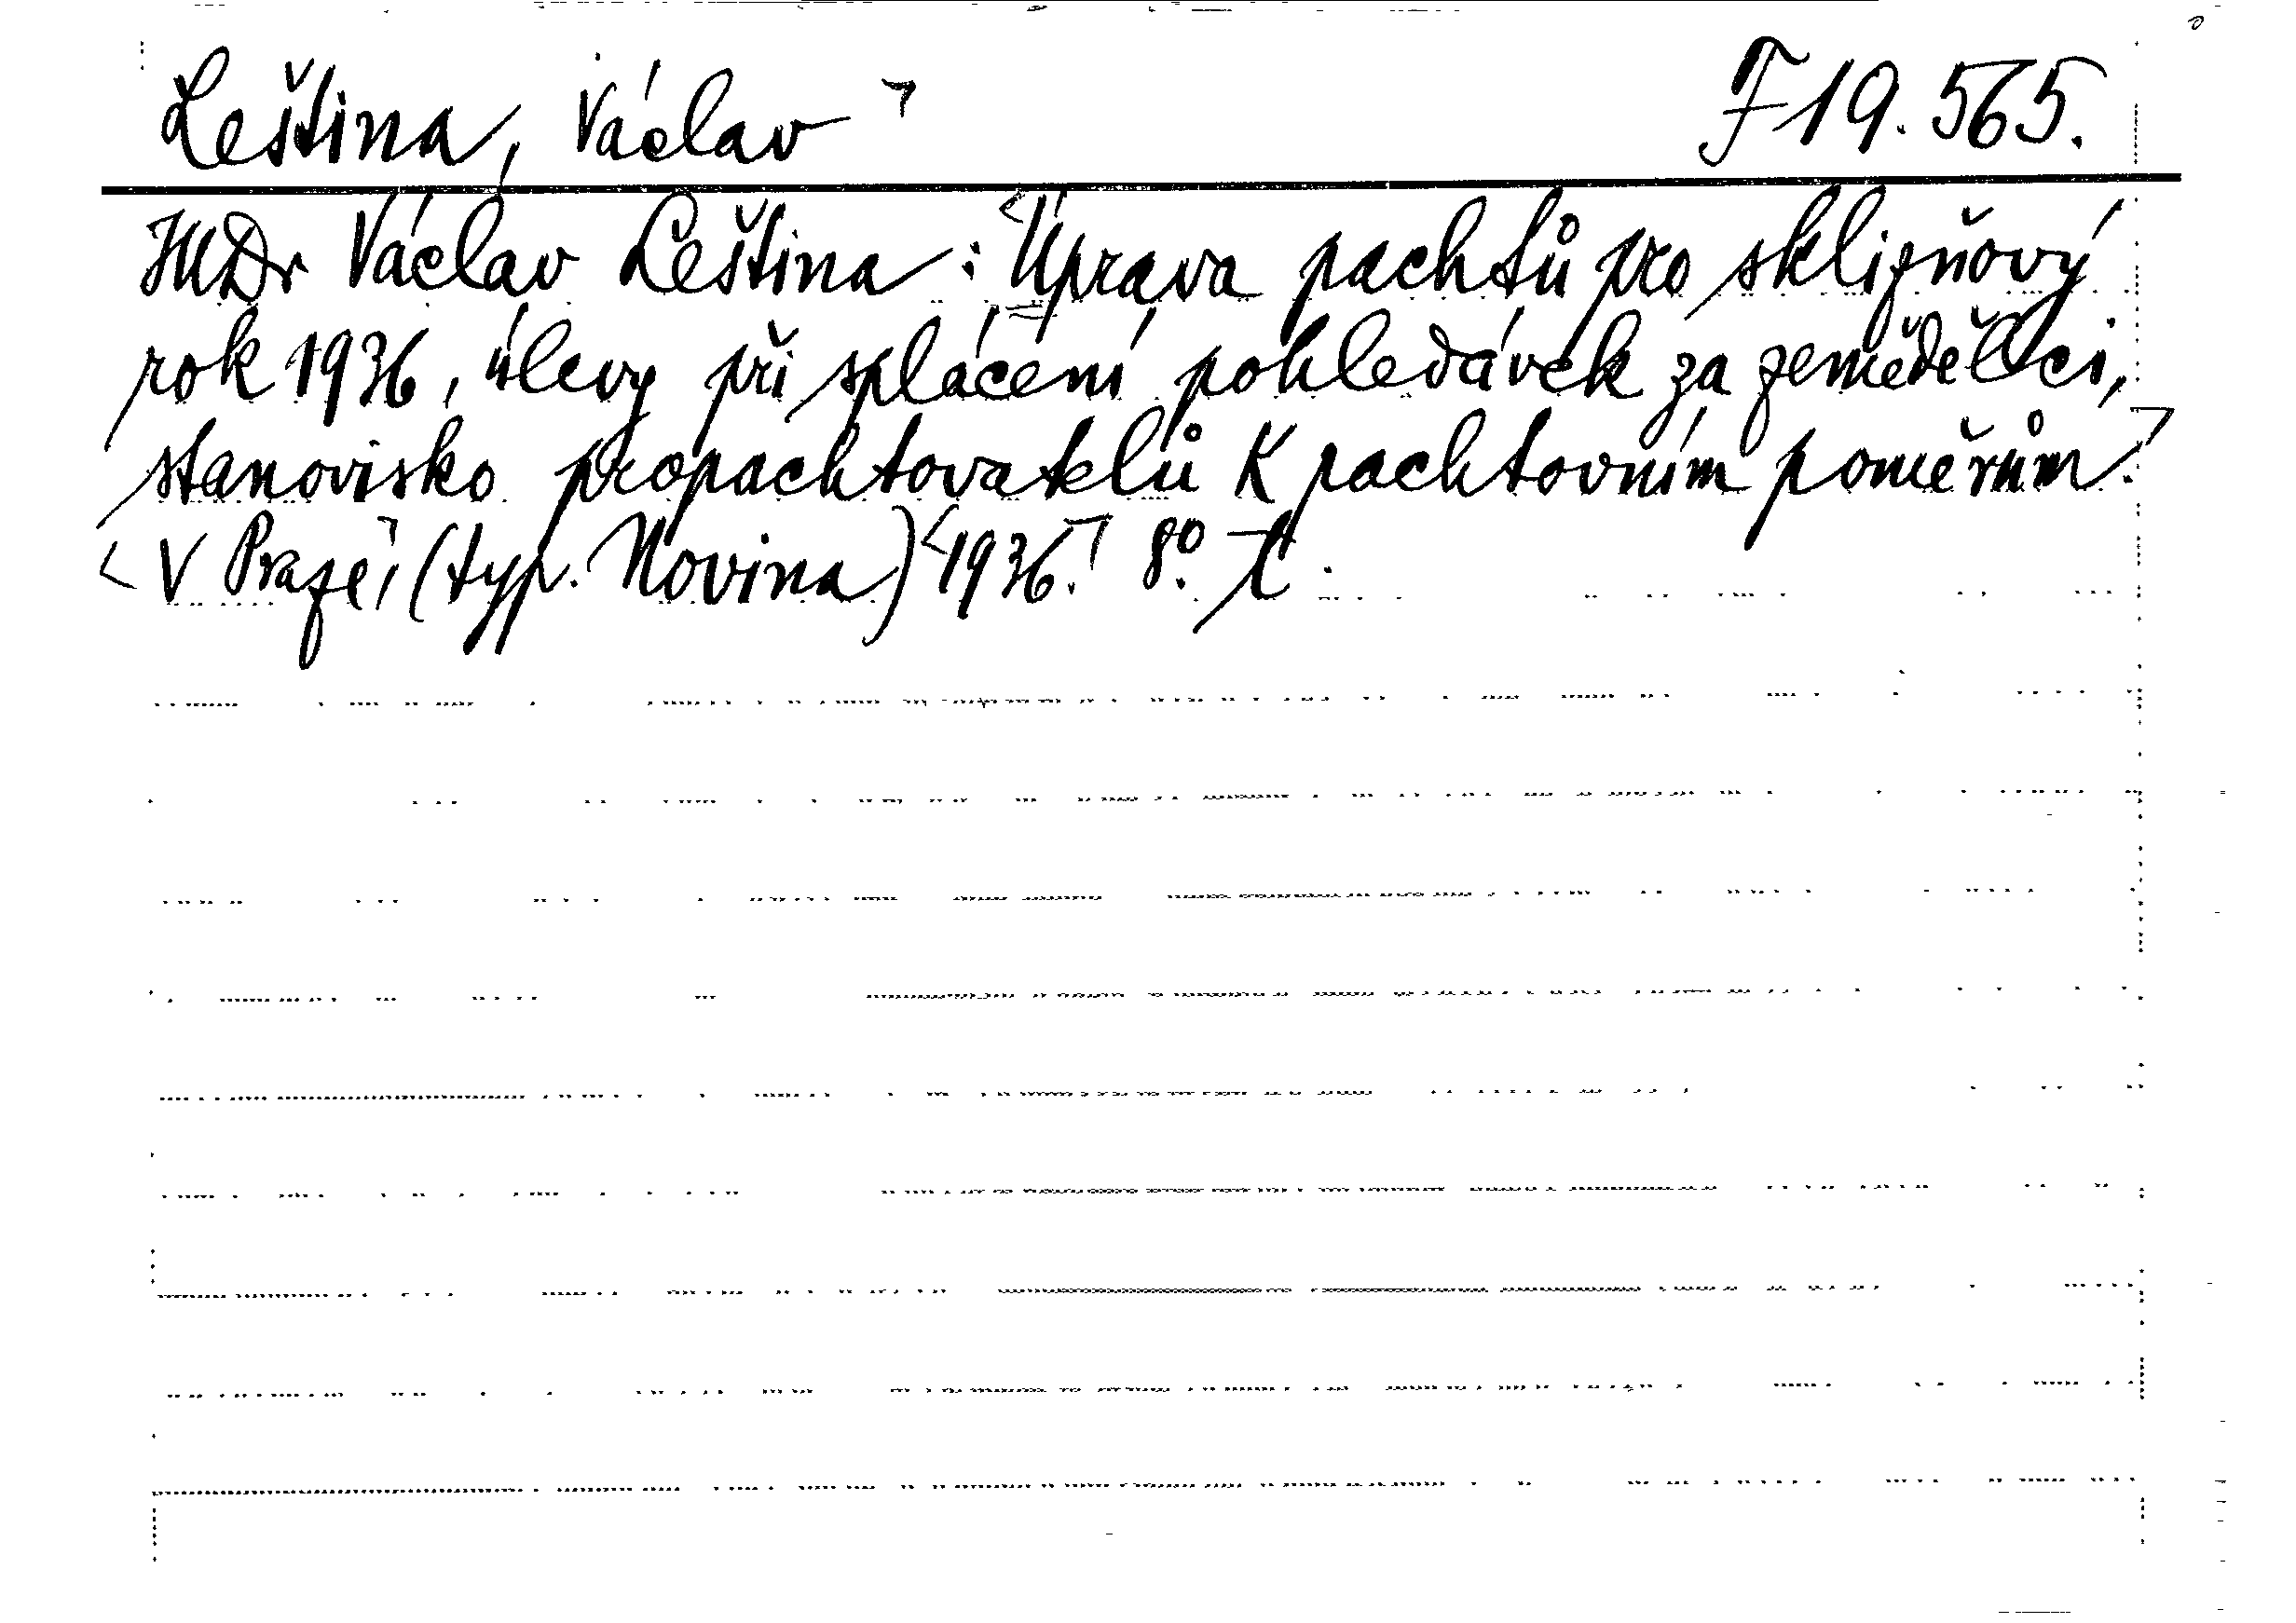 Leština, Václav F 19.565.
JUDr Václav Leština: Úprava pachtů pro sklizňový
rok 1936, úlevy při splácení pohledávek za zemědělci,
stanovisko propachtovatelů k pachtovním poměrům.
V Praze, (typ. Novina) 1936. 8°.